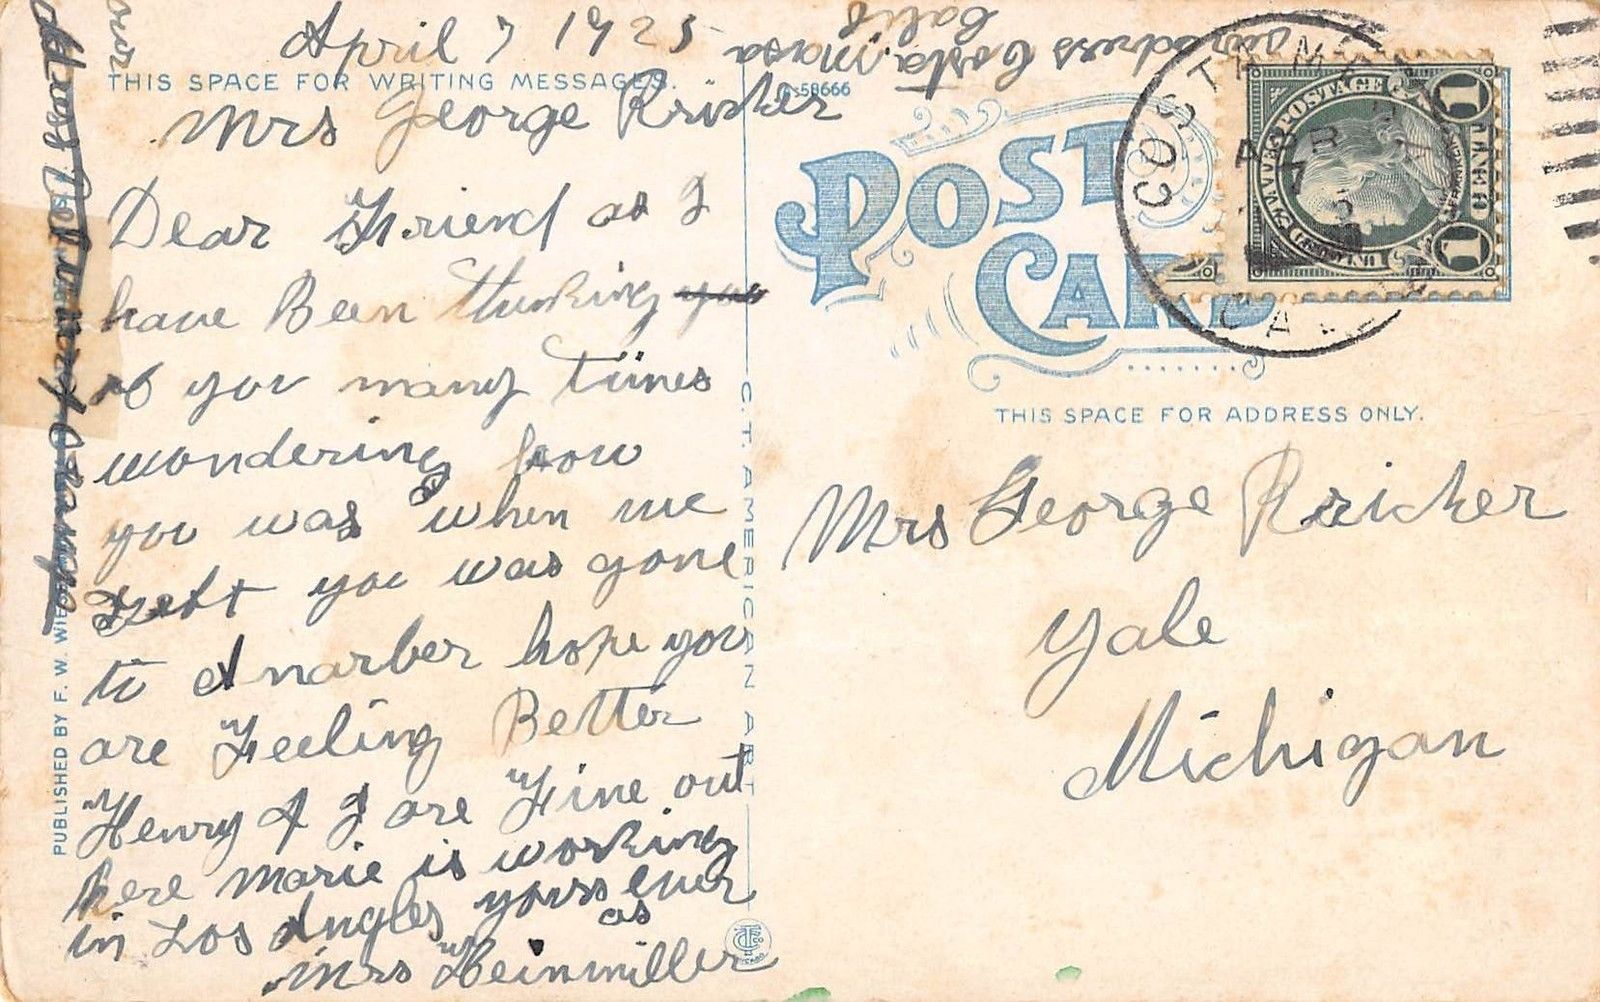 April 7 1925
THIS SPACE FOR WRITING MESSAGES.
Mrs George Kricher
Dear Friend as I
have Been thinking you
of you many times
wondering how
you was when we
Left you was gone
to Anarber hope you
are Feeling Better
Henry & I are Fine out
here marie is working
in Los Angles yours ever
as
Mrs Heinmiller
our
address Costa masa
Calif
PUBLISHED BY F. W.
58666
C. T. AMERICAN ART
POST
CARD
THIS SPACE FOR ADDRESS ONLY.
COSTA MESA
APR
7
CALIF
1 1
Mrs George Kricher
Yale
Michigan